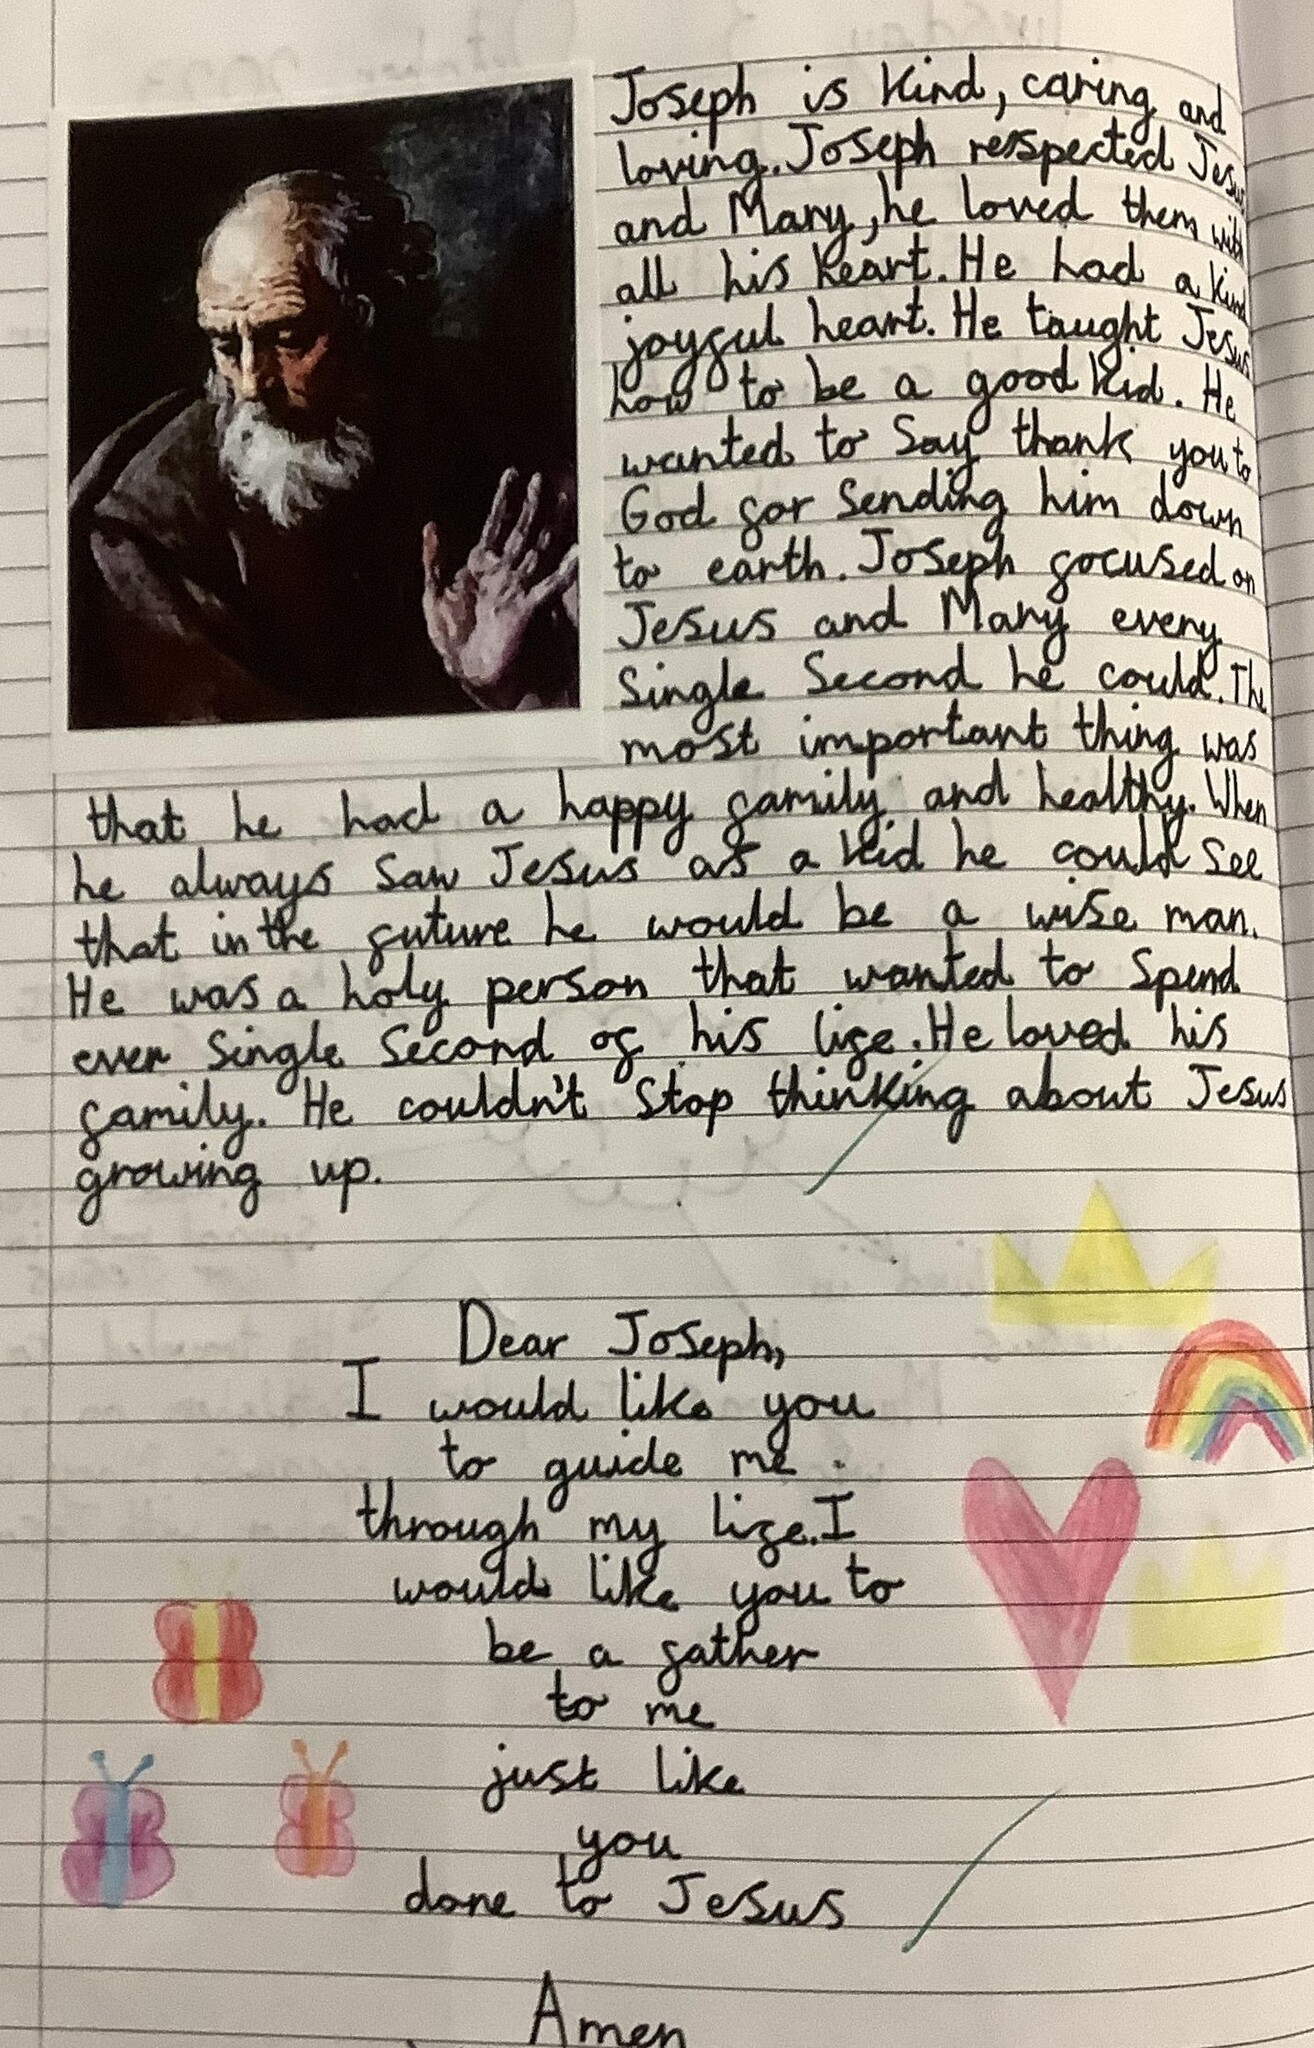 Joseph is kind, caring and
loving. Joseph respected Jesus
and Mary, he loved them with
all his heart. He had a kind
joyful heart. He taught Jesus
how to be a good kid. He
wanted to say thank you to
God for sending him down
to earth. Joseph focused on
Jesus and Mary every
single second he could. The
most important thing was
that he had a happy family and healthy. When
he always saw Jesus as a kid he could see
that in the future he would be a wise man.
He was a holy person that wanted to spend
ever single second of his life. He loved his
family. He couldn't stop thinking about Jesus
growing up.
Dear Joseph,
I would like you
to guide me
through my life. I
would like you to
be a father
to me
just like
you
done to Jesus
Amen